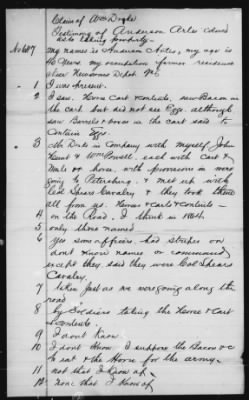 Claim of Wm Doyle
Testimony of Anderson Artes colored
as to taking property—
No 607 my name is Anderson Artes, my age is
46 years, my occupation farmer residence
near Newsoms Depot
1 I was present.
2 I saw Horse Cart & contents, saw Bacon in
the cart but did not see Eggs although
saw Barrels & boxes in the cart said to
contain Eggs.
3 in Company with myself John
& Wm Powell, each with cart &
mule or horse, with provisions in were
going to Petersburg, & met up with
Col Spears Cavalry & they took them
all from us. Horses & Carts & contents—
4 on the Road, I think in 1864.
5 only those named
6 Yes some officers had stripes on
dont know names or command
except they said they were Col Spears
Cavalry.
7 taken just as we were going along the
road
8 by Soldiers taking the Horse & Cart
& contents.
9 I dont know.
10 I dont know. I suppose the Bacon &c
to eat & the Horse for the army.
11 not that I know of.
12 none that I know of